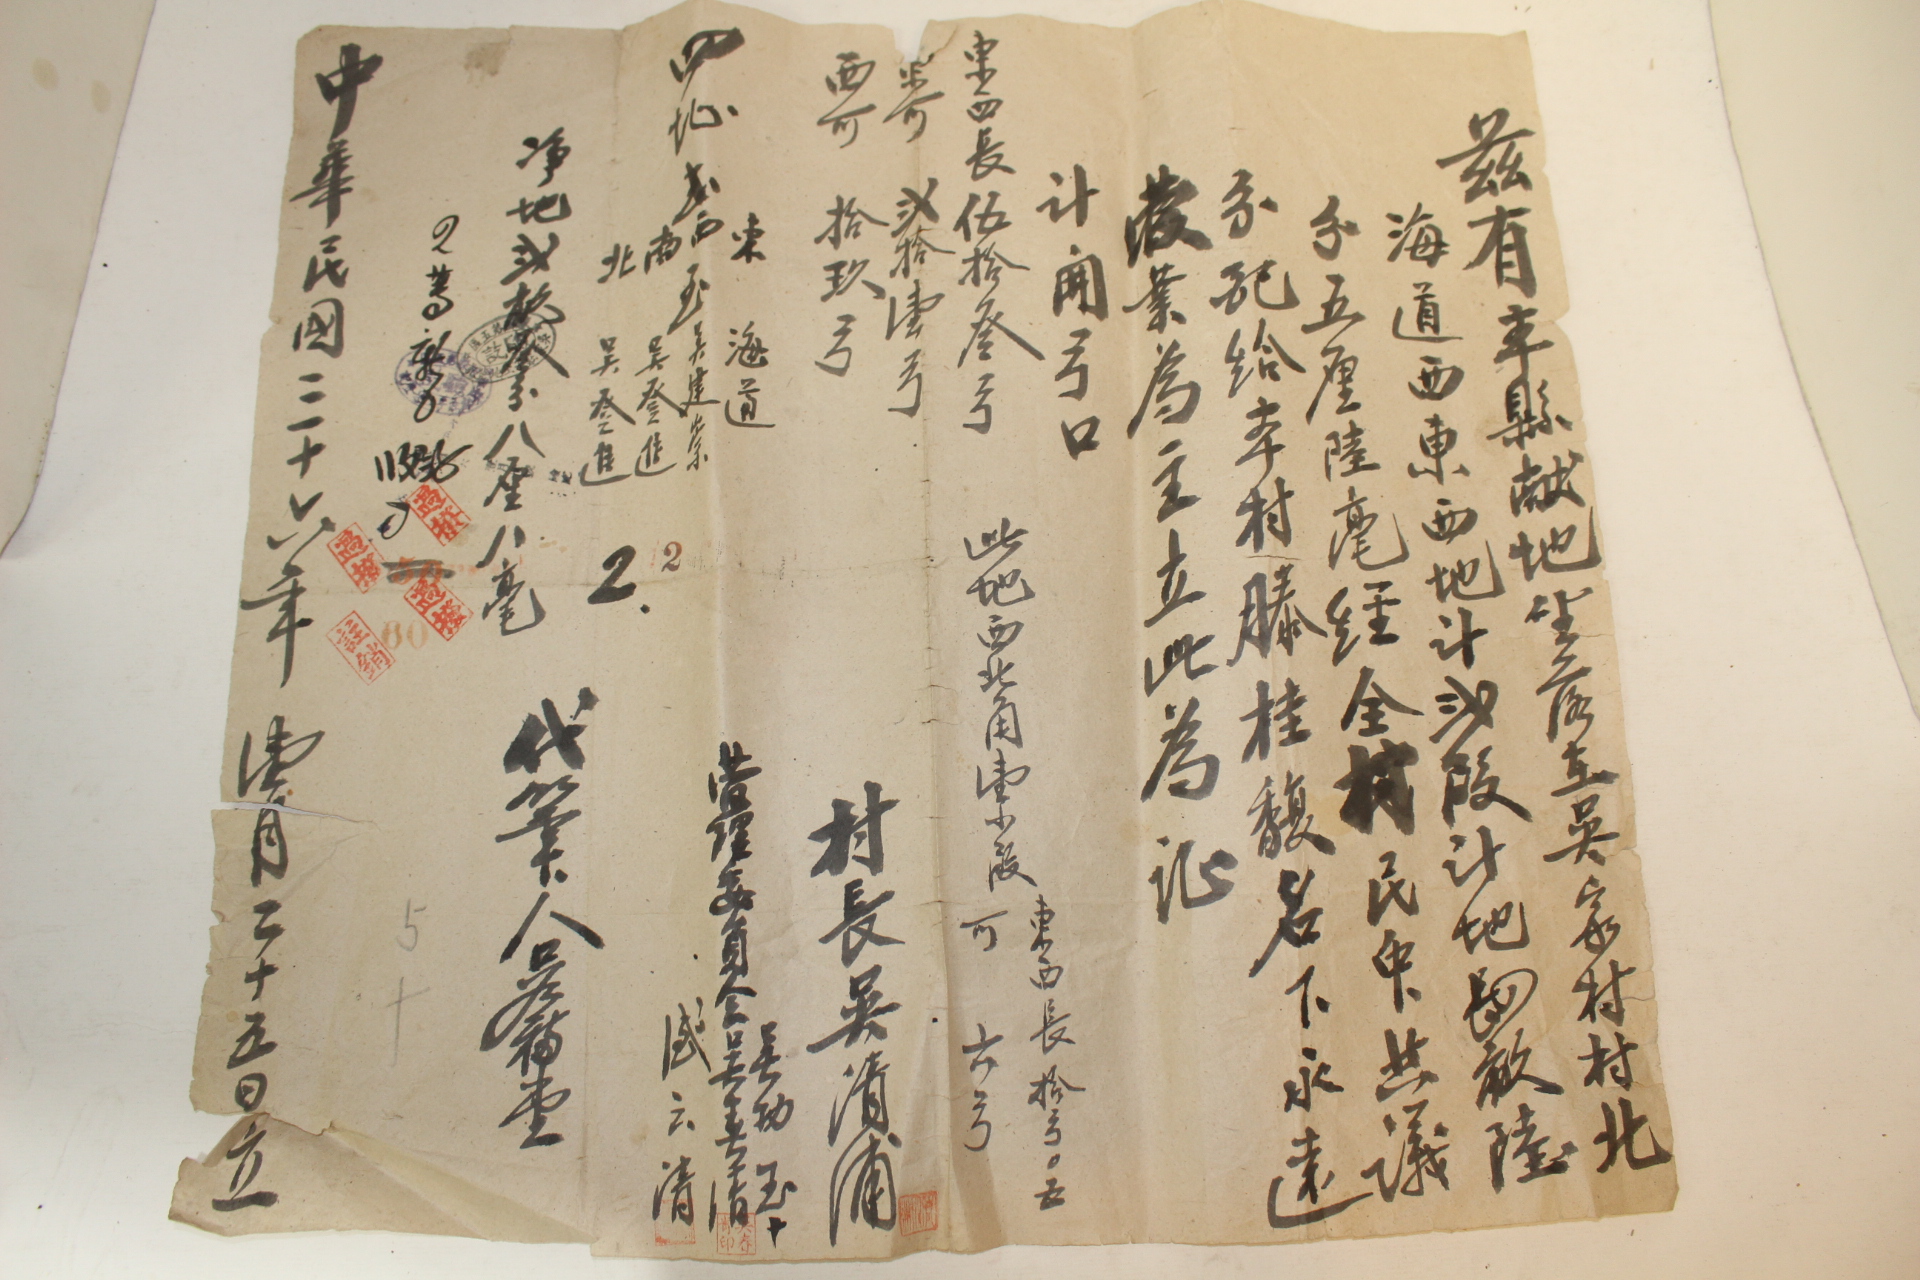 茲有本縣献地坐落在吳家村村北
海道西東西地計弍段計地四畝陸
分五厘陸毫經全村民中共議
分配給本村滕桂馥名下永遠
營業為主立此為证
計開弓口
東西長伍拾叁弓
東可弍拾壹弓
西可拾玖弓
此地西北角壹小段 東西長拾弓〇五
可六弓
四址 東至海道
西至吳建崇
南吳登進
北吳登進
净地弍畝叁分八厘八毫
2
2.
村長吳清浦
管理委員會 吳功玉十
吳春清
盛云清
代筆人吳蘊堂
中華民國三十六年壹月二十五日立
5
註銷
00